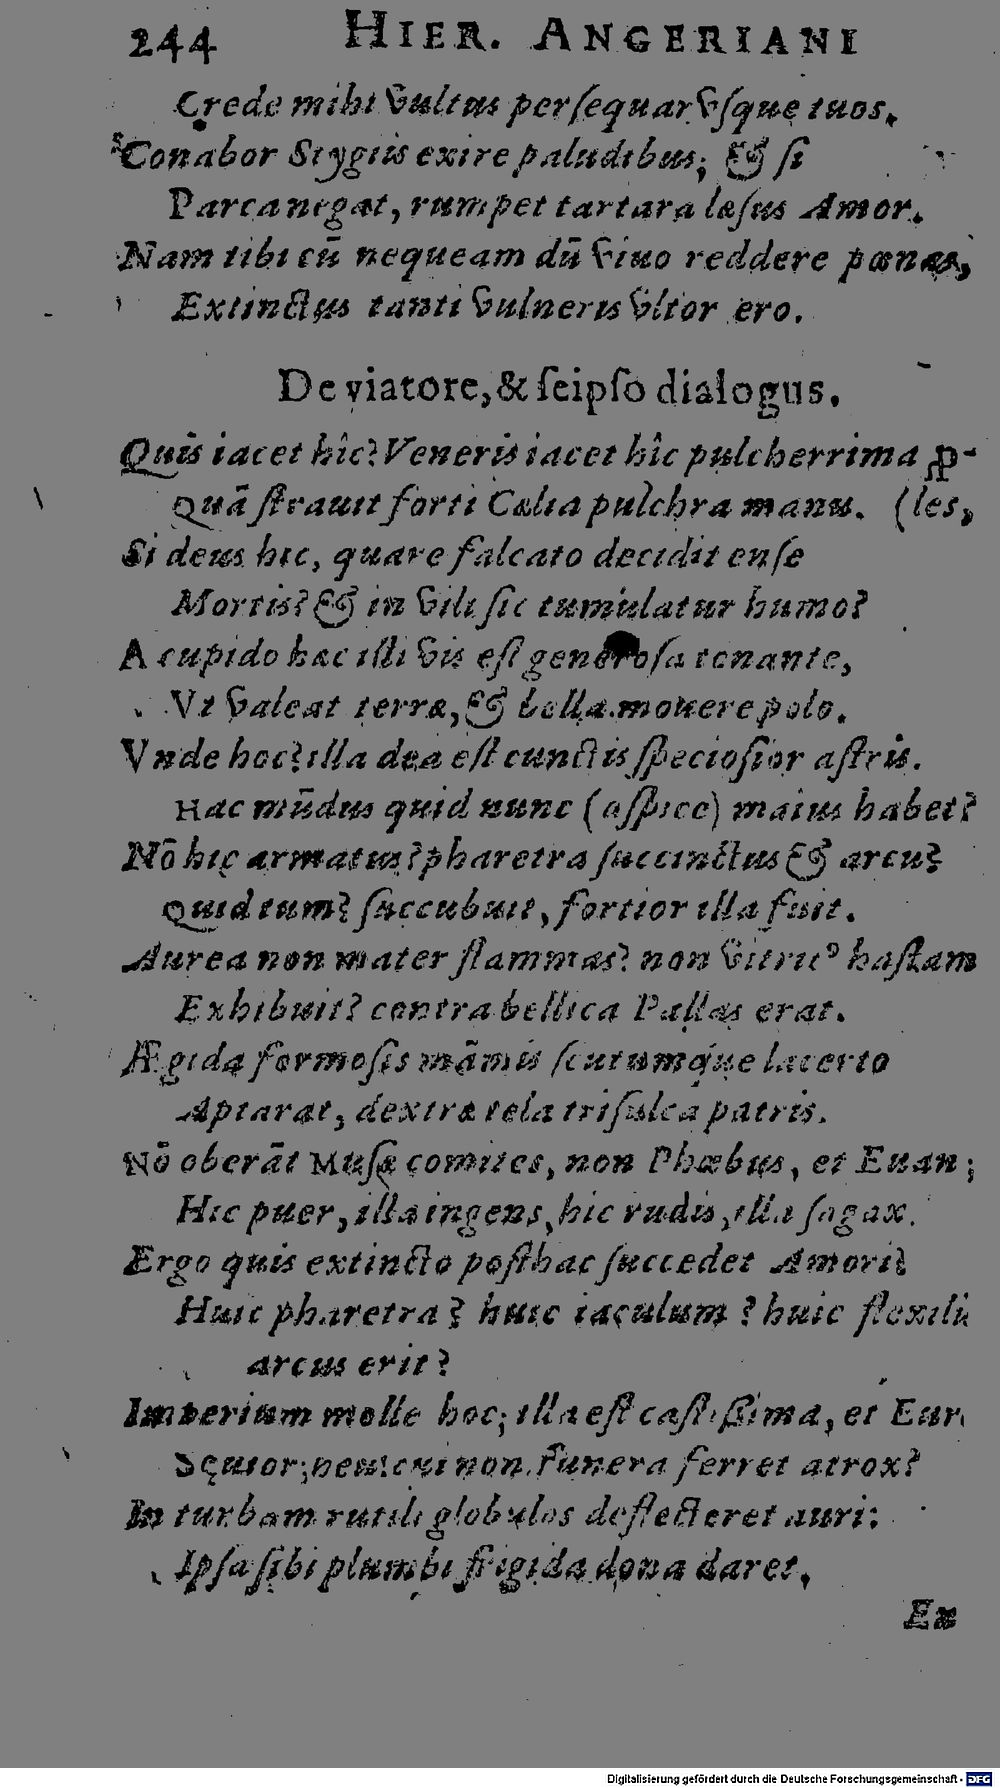 244 HIER. ANGERIANI
Crede mihi vultus persequar vsque tuos.
Conabor Stygiis exire paludibus; & si
Parca negat, rumpet tartara læsus Amor.
Nam tibi cū nequeam dū viuo reddere pœnas,
Extinctus tanti vulneris vltor ero.
De viatore, & seipso dialogus.
Quis iacet hîc? Veneris iacet hîc pulcherrima ꝓ-
Quā strauit forti Cælia pulchra manu. (les,
Si deus hic, quare falcato decidit ense
Mortis? & in vili sic tumulatur humo?
A cupido hæc illi vis est generosa tonante,
Vt valeat terræ, & bella mouere polo.
Vnde hoc? illa dea est cunctis speciosior astris.
Hac mūdus quid nunc (aspice) maius habet?
Nō hic armatus? pharetra succinctus & arcu?
Quid tum? succubuit, fortior illa fuit.
Aurea non mater flammas? non vitric⁹ hastam
Exhibuit? contra bellica Pallas erat.
Ægida formosis māmis scutumque lacerto
Aptarat, dextræ tela trisulca patris.
Nō oberāt Musæ comites, non Phœbus, et Euan;
Hic puer, illa ingens, hic rudis, illa sagax.
Ergo quis extincto posthac succedet Amori?
Huic pharetra? huic iaculum? huic flexilis
arcus erit?
Imperium molle hoc; illa est castissima, et Eur.
funera ferret atrox?
In turbam rutili globulos deflecteret auri:
Ipsa sibi plumbi frigida dona daret.
Ex
Digitalisierung gefördert durch die Deutsche Forschungsgemeinschaft - DFG